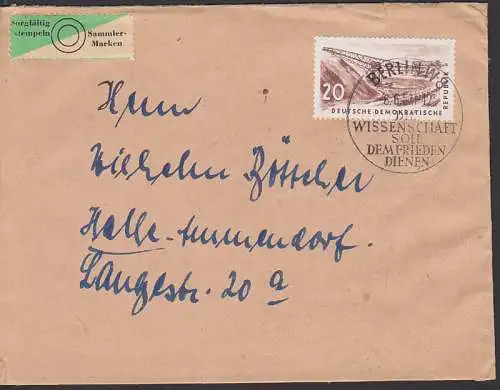 Sorgfältig
stempeln
Sammler-
Marken
20
DEUTSCHE DEMOKRATISCHE
REPUBLIK
BERLIN
WISSENSCHAFT
SOLL
DEM FRIEDEN
DIENEN
Herrn
Wilhelm Böttcher
Halle-Ammendorf.
Langestr. 20 a